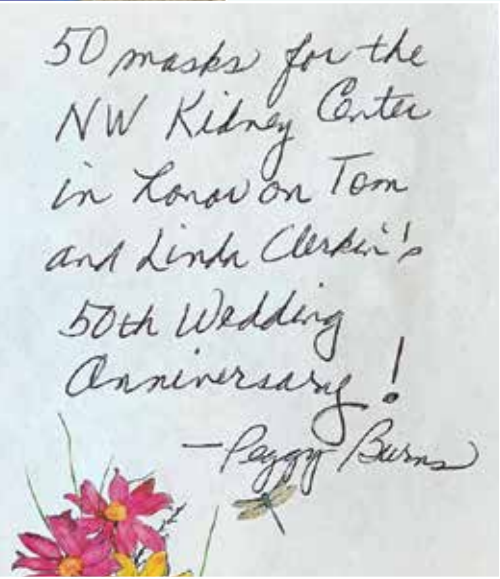 50 masks for the
NW Kidney Center
in honor on Tom
and Linda Clerkin's
50th Wedding
Anniversary!
—Peggy Burns